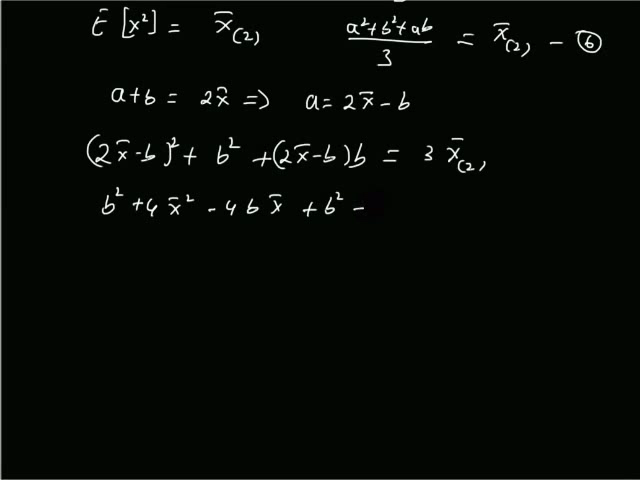 E [x²] = x̄₍₂₎   (a²+b²+ab)/3 = x̄₍₂₎ - ⑥
a+b = 2x̄ => a = 2x̄ - b
(2x̄-b)² + b² + (2x̄-b)b = 3 x̄₍₂₎
b² + 4x̄² - 4bx̄ + b² -